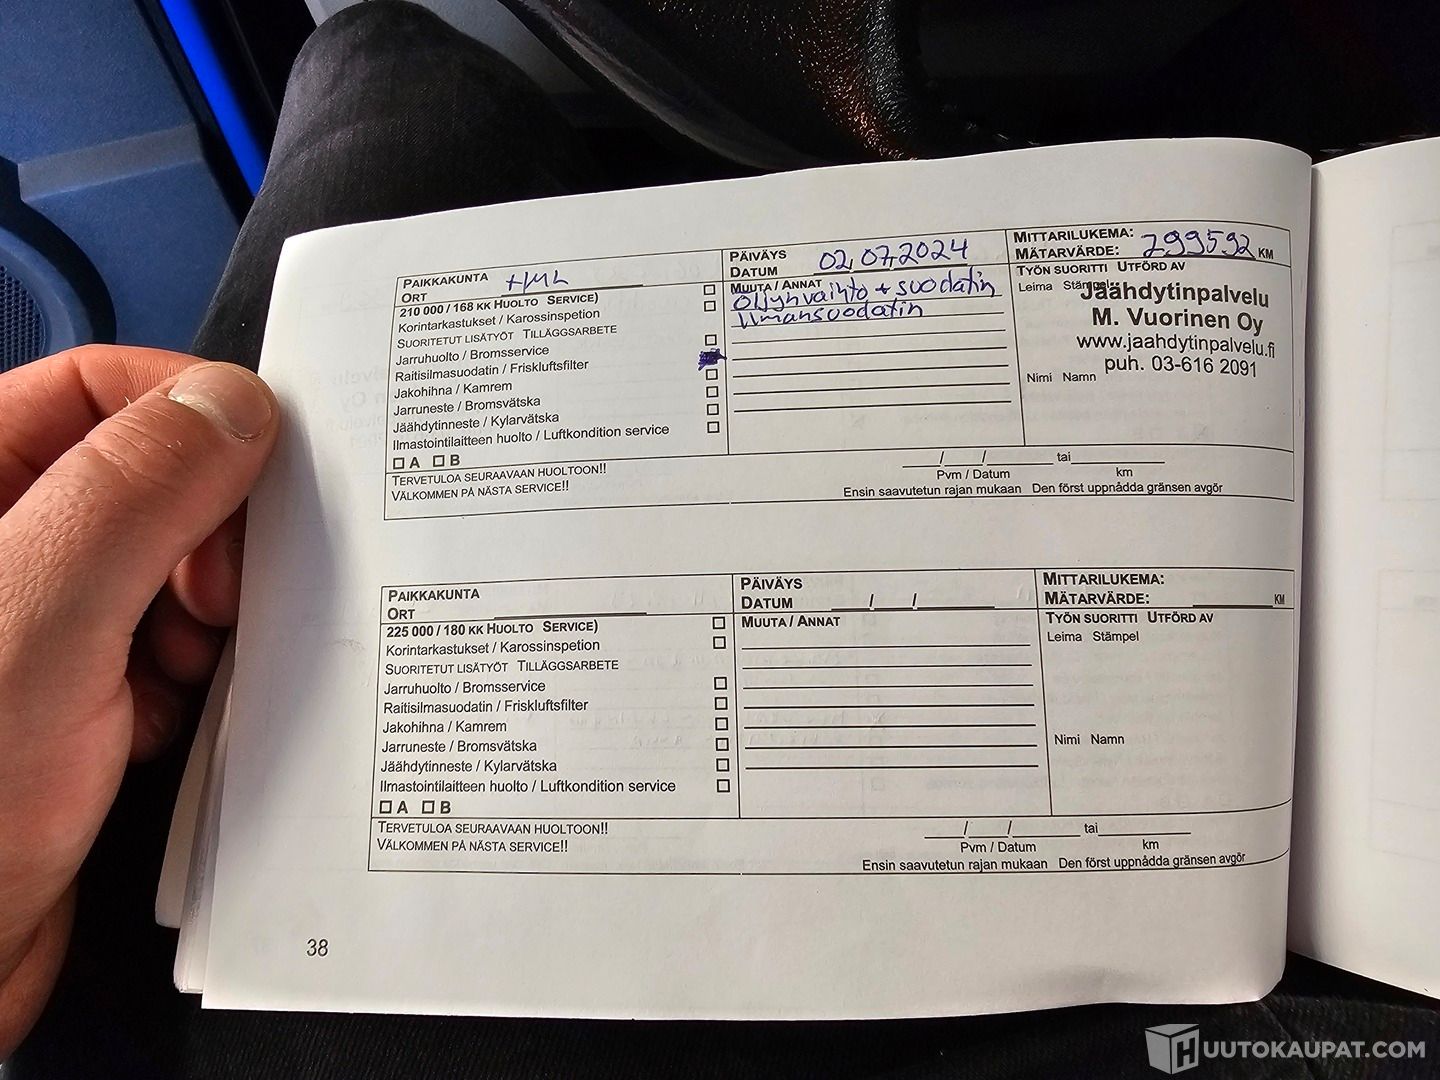 PAIKKAKUNTA HML
ORT
PÄIVÄYS
DATUM 02,07,2024
MITTARILUKEMA:
MÄTARVÄRDE: 299592 KM
210 000 / 168 KK HUOLTO SERVICE)
Korintarkastukset / Karossinspetion
SUORITETUT LISÄTYÖT TILLÄGGSARBETE
Jarruhuolto / Bromsservice
Raitisilmasuodatin / Friskluftsfilter
Jakohihna / Kamrem
Jarruneste / Bromsvätska
Jäähdytinneste / Kylarvätska
Ilmastointilaitteen huolto / Luftkondition service
A B
MUUTA / ANNAT
Öljynvaihto + suodatin
Ilmansuodatin
TYÖN SUORITTI UTFÖRD AV
Leima Stämpel
Jäähdytinpalvelu
M. Vuorinen Oy
www.jaahdytinpalvelu.fi
puh. 03-616 2091
Nimi Namn
TERVETULOA SEURAAVAAN HUOLTOON!!
VÄLKOMMEN PÅ NÄSTA SERVICE!!
/ / tai
Pvm / Datum km
Ensin saavutetun rajan mukaan Den först uppnådda gränsen avgör
PAIKKAKUNTA
ORT
PÄIVÄYS
DATUM / /
MITTARILUKEMA:
MÄTARVÄRDE: KM
225 000 / 180 KK HUOLTO SERVICE)
Korintarkastukset / Karossinspetion
SUORITETUT LISÄTYÖT TILLÄGGSARBETE
Jarruhuolto / Bromsservice
Raitisilmasuodatin / Friskluftsfilter
Jakohihna / Kamrem
Jarruneste / Bromsvätska
Jäähdytinneste / Kylarvätska
Ilmastointilaitteen huolto / Luftkondition service
A B
MUUTA / ANNAT
TYÖN SUORITTI UTFÖRD AV
Leima Stämpel
Nimi Namn
TERVETULOA SEURAAVAAN HUOLTOON!!
VÄLKOMMEN PÅ NÄSTA SERVICE!!
/ / tai
Pvm / Datum km
Ensin saavutetun rajan mukaan Den först uppnådda gränsen avgör
38
HUUTOKAUPAT.COM